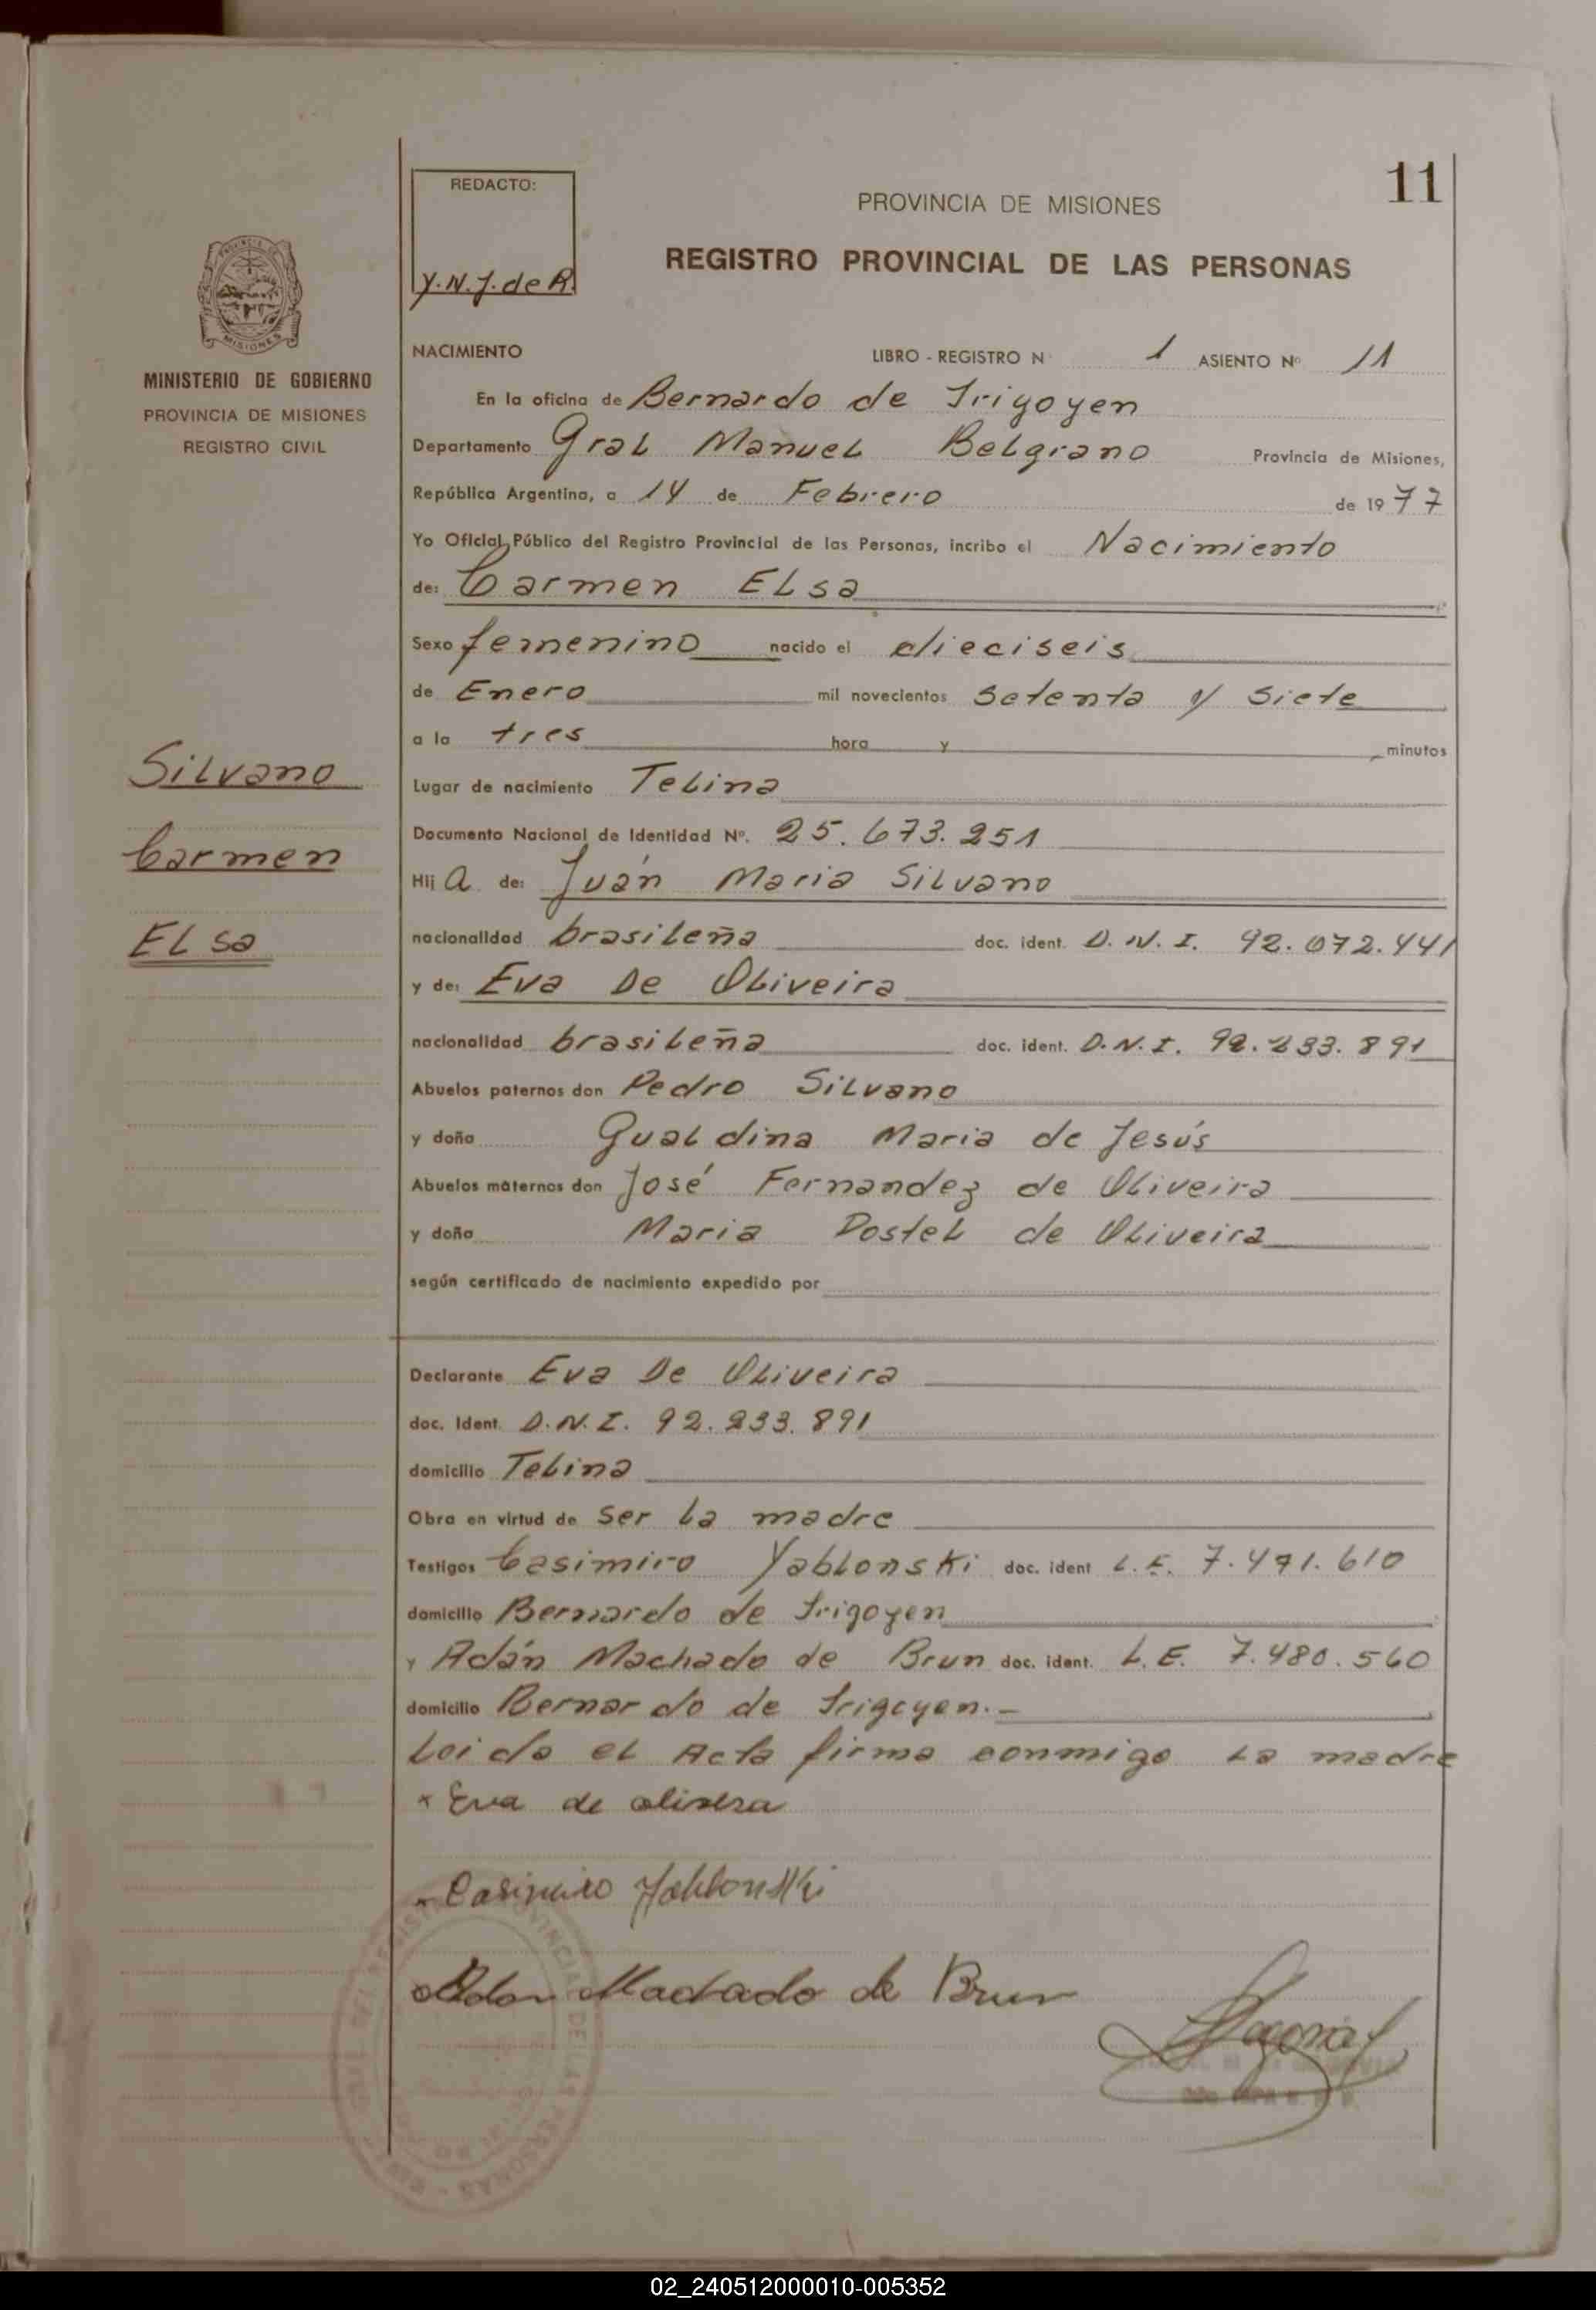 11
REDACTO:
Y.N.J. de R.
PROVINCIA DE MISIONES
REGISTRO PROVINCIAL DE LAS PERSONAS
MINISTERIO DE GOBIERNO
PROVINCIA DE MISIONES
REGISTRO CIVIL
NACIMIENTO LIBRO - REGISTRO Nº 1 ASIENTO Nº 11
En la oficina de Bernardo de Irigoyen
Departamento Gral Manuel Belgrano Provincia de Misiones,
República Argentina, a 14 de Febrero de 1977
Yo Oficial Público del Registro Provincial de las Personas, incribo el Nacimiento
de: Carmen Elsa
Sexo femenino nacido el dieciseis
de Enero mil novecientos setenta y siete
a la tres hora y minutos
Lugar de nacimiento Telina
Documento Nacional de Identidad Nº. 25.673.251
Hij a de: Juán Maria Silvano
nacionalidad brasileña doc. ident. D.N.I. 92.072.441
y de: Eva De Oliveira
nacionalidad brasileña doc. ident. D.N.I. 92.233.891
Abuelos paternos don Pedro Silvano
y doña Gualdina Maria de Jesús
Abuelos maternos don José Fernandez de Oliveira
y doña Maria Postel de Oliveira
según certificado de nacimiento expedido por
Silvano
Carmen
Elsa
Declarante Eva De Oliveira
doc. Ident. D.N.I. 92.233.891
domicilio Telina
Obra en virtud de ser la madre
Testigos Casimiro Yablonski doc. ident L.E. 7.471.610
domicilio Bernardo de Irigoyen
y Adán Machado de Brun doc. ident. L.E. 7.480.560
domicilio Bernardo de Irigoyen.-
Leido el Acta firma conmigo la madre
x Eva de olivera
x Casimiro Jablonski
Adan Machado de Brun
02_240512000010-005352